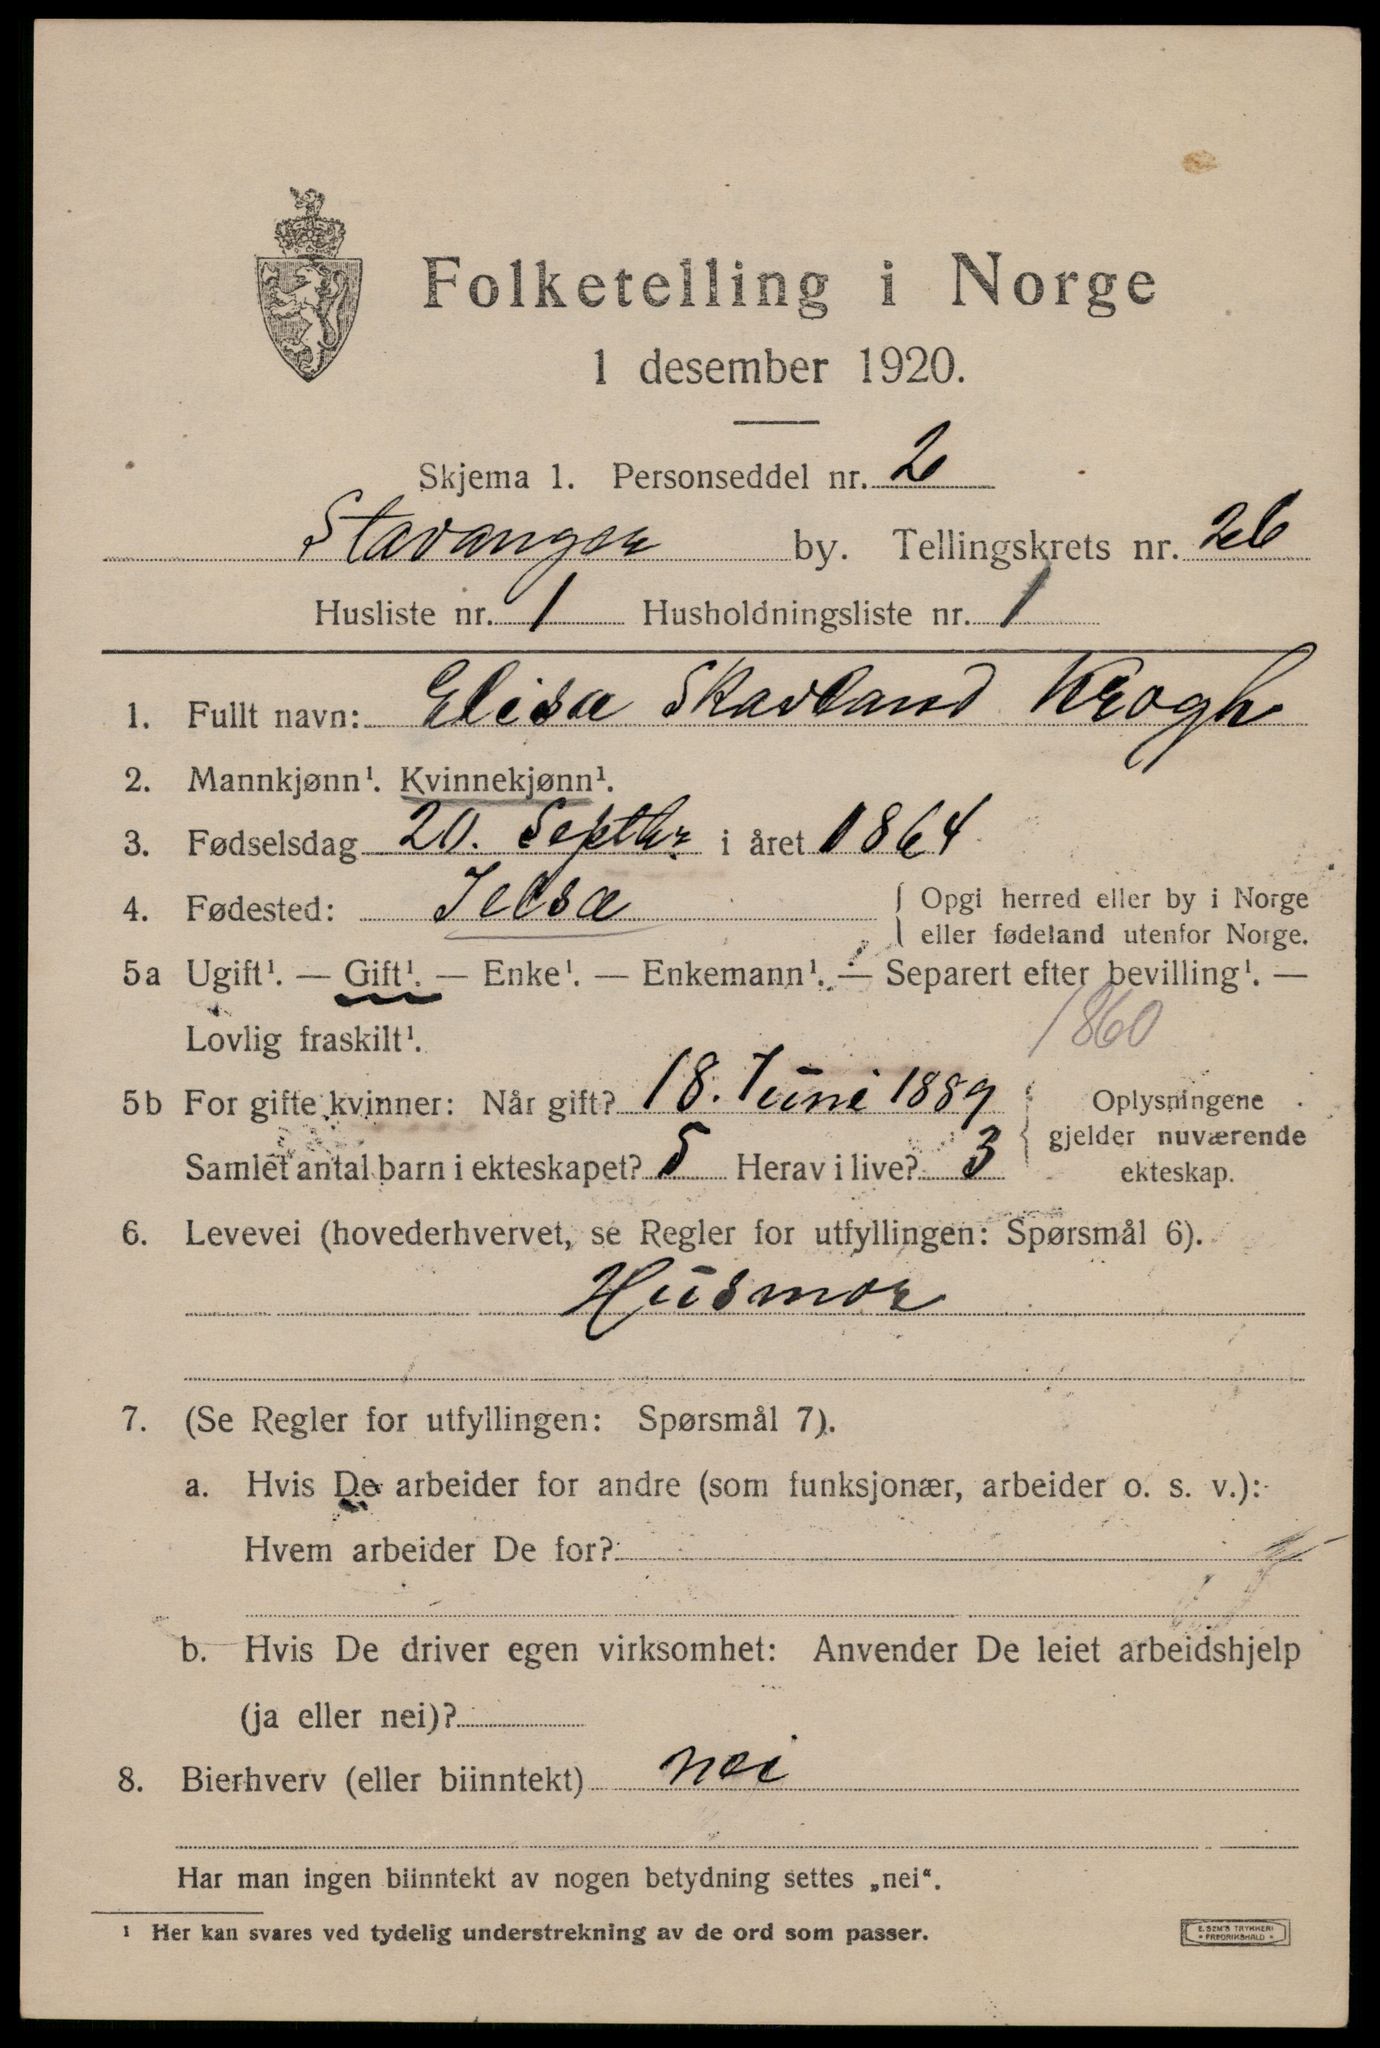 Folketelling i Norge
1 desember 1920.
Skjema 1. Personseddel nr. 2
Stavanger by. Tellingskrets nr. 26
Husliste nr. 1 Husholdningsliste nr. 1
1. Fullt navn: Elisa Skavland Krogh
2. Mannkjønn¹. Kvinnekjønn¹.
3. Fødselsdag 20. Septbr i året 1864
4. Fødested: Jelsa { Opgi herred eller by i Norge
eller fødeland utenfor Norge.
5a Ugift¹. — Gift¹. — Enke¹. — Enkemann¹. — Separert efter bevilling¹. —
Lovlig fraskilt¹. 1860
5b For gifte kvinner: Når gift? 18. Juni 1889 { Oplysningene
gjelder nuværende
Samlet antal barn i ekteskapet? 5 Herav i live? 3 ekteskap.
6. Levevei (hovederhvervet, se Regler for utfyllingen: Spørsmål 6).
Husmor
7. (Se Regler for utfyllingen: Spørsmål 7).
a. Hvis De arbeider for andre (som funksjonær, arbeider o. s. v.):
Hvem arbeider De for?
b. Hvis De driver egen virksomhet: Anvender De leiet arbeidshjelp
(ja eller nei)?
8. Bierhverv (eller biinntekt) nei
Har man ingen biinntekt av nogen betydning settes „nei“.
¹ Her kan svares ved tydelig understrekning av de ord som passer.
E. SEM'S TRYKKERI
FREDRIKSHALD